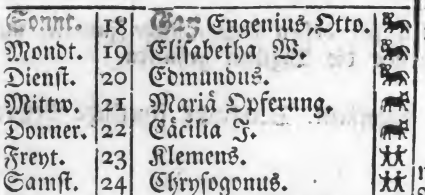 Sonnt. 18 Eugenius, Otto.
Mondt. 19 Elisabetha W.
Dienst. 20 Edmundus.
Mittw. 21 Mariä Opferung.
Donner. 22 Cäcilia J.
Freyt. 23 Klemens.
Samst. 24 Chrysogonus.